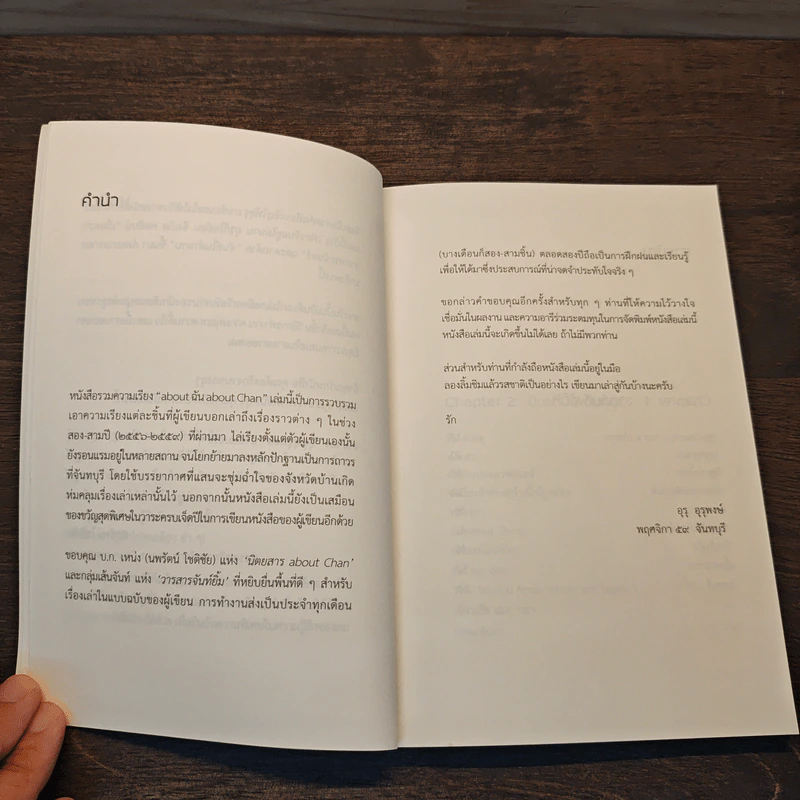 คำนำ
หนังสือรวมความเรียง "about ฉัน about Chan" เล่มนี้เป็นการรวบรวม
เอาความเรียงแต่ละชิ้นที่ผู้เขียนบอกเล่าถึงเรื่องราวต่าง ๆ ในช่วง
สอง-สามปี (๒๕๕๖-๒๕๕๙) ที่ผ่านมา ไล่เรียงตั้งแต่ตัวผู้เขียนเองนั้น
ยังรอนแรมอยู่ในหลายสถาน จนโยกย้ายมาลงหลักปักฐานเป็นการถาวร
ที่จันทบุรี โดยใช้บรรยากาศที่แสนจะชุ่มฉ่ำใจของจังหวัดบ้านเกิด
ห่มคลุมเรื่องเล่าเหล่านั้นไว้ นอกจากนั้นหนังสือเล่มนี้ยังเป็นเสมือน
ของขวัญสุดพิเศษในวาระครบเจ็ดปีในการเขียนหนังสือของผู้เขียนอีกด้วย
ขอบคุณ บ.ก. เหน่ง (นพรัตน์ โชติชัย) แห่ง 'นิตยสาร about Chan'
และกลุ่มเส้นจันท์ แห่ง 'วารสารจันท์ยิ้ม' ที่หยิบยื่นพื้นที่ดี ๆ สำหรับ
เรื่องเล่าในแบบฉบับของผู้เขียน การทำงานส่งเป็นประจำทุกเดือน
(บางเดือนก็สอง-สามชิ้น) ตลอดสองปีถือเป็นการฝึกฝนและเรียนรู้
เพื่อให้ได้มาซึ่งประสบการณ์ที่น่าจดจำประทับใจจริง ๆ
ขอกล่าวคำขอบคุณอีกครั้งสำหรับทุก ๆ ท่านที่ให้ความไว้วางใจ
เชื่อมั่นในผลงาน และความอารีร่วมระดมทุนในการจัดพิมพ์หนังสือเล่มนี้
หนังสือเล่มนี้จะเกิดขึ้นไม่ได้เลย ถ้าไม่มีพวกท่าน
ส่วนสำหรับท่านที่กำลังถือหนังสือเล่มนี้อยู่ในมือ
ลองลิ้มชิมแล้วรสชาติเป็นอย่างไร เขียนมาเล่าสู่กันบ้างนะครับ
รัก
อุรุ อุรุพงษ์
พฤศจิกา ๕๙ จันทบุรี